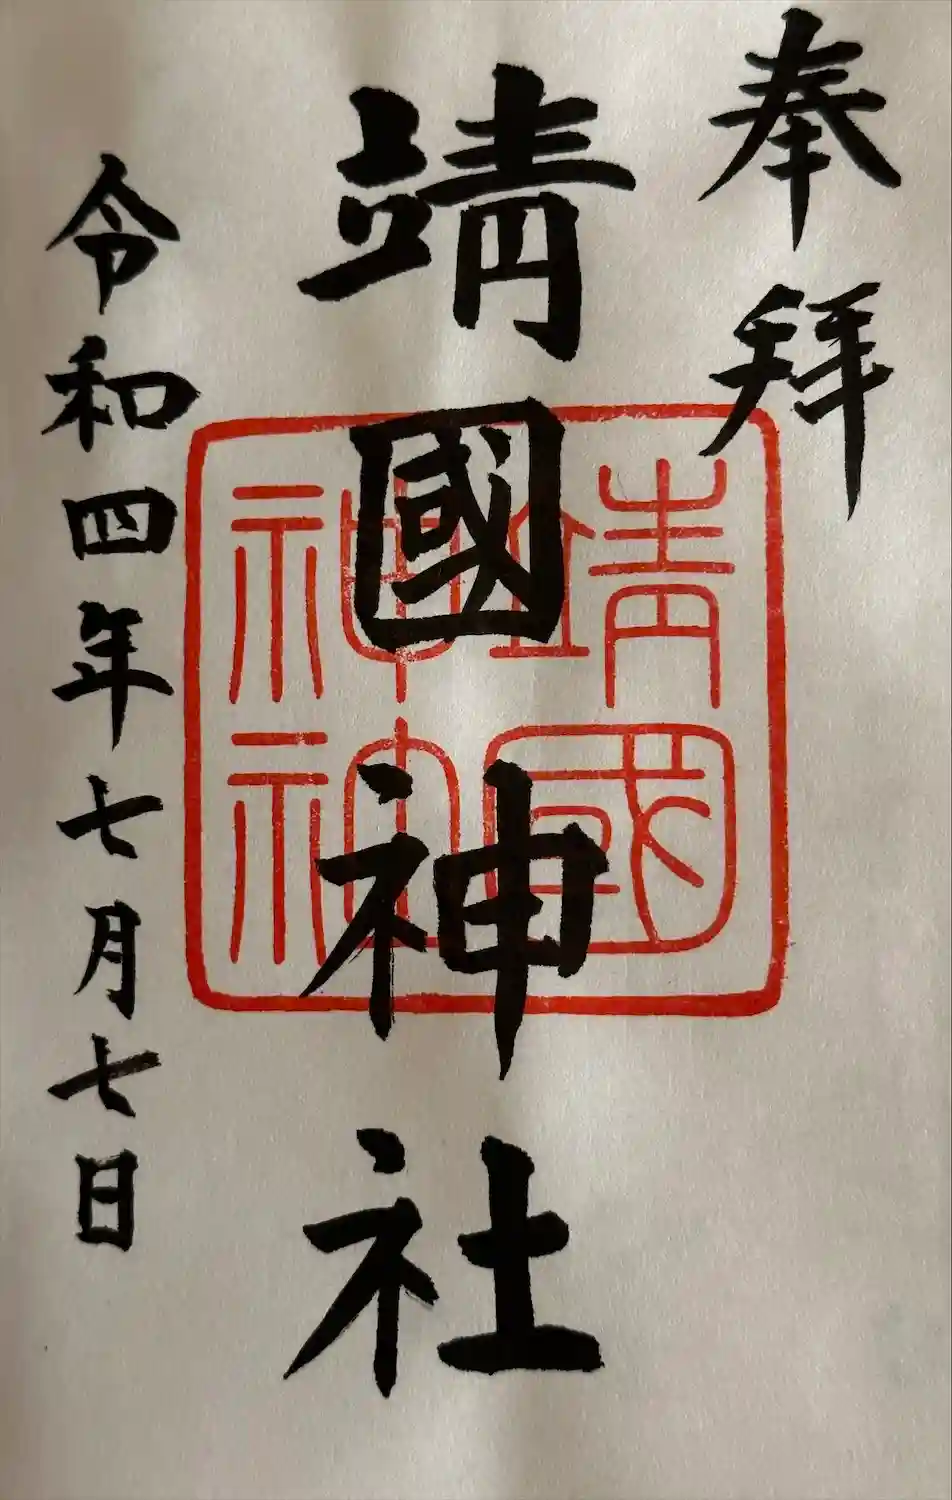 奉拝
靖國神社
令和四年七月七日
靖國
神